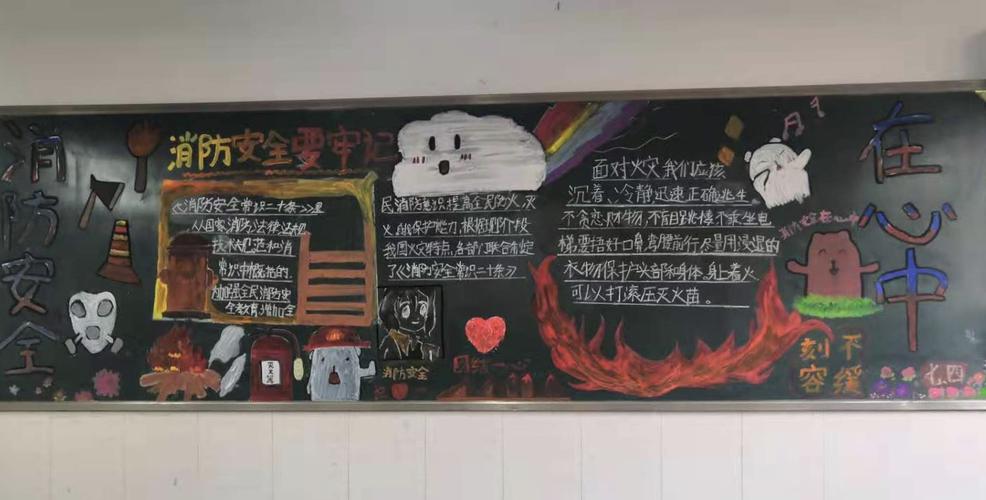 消防安全
消防安全要牢记
《消防安全常识二十条》是
从国家消防法律法规
技术规范和消
防常识中概括的
为加强全民消防安
全教育,增加全
民消防意识提高全民防火、灭
火、自救保护能力,根据现阶段
我国火灾特点,各部门联合制定
了《消防安全常识二十条》
灭火器
消防安全
团结一心
面对火灾我们应该
沉着、冷静迅速正确逃生
不贪恋财物,不盲目跳楼不乘坐电
梯,要捂好口鼻弯腰前行尽量用浸湿的
衣物保护头部和身体,身上着火
可以打滚压灭火苗。
在心中
刻不
容缓
七四